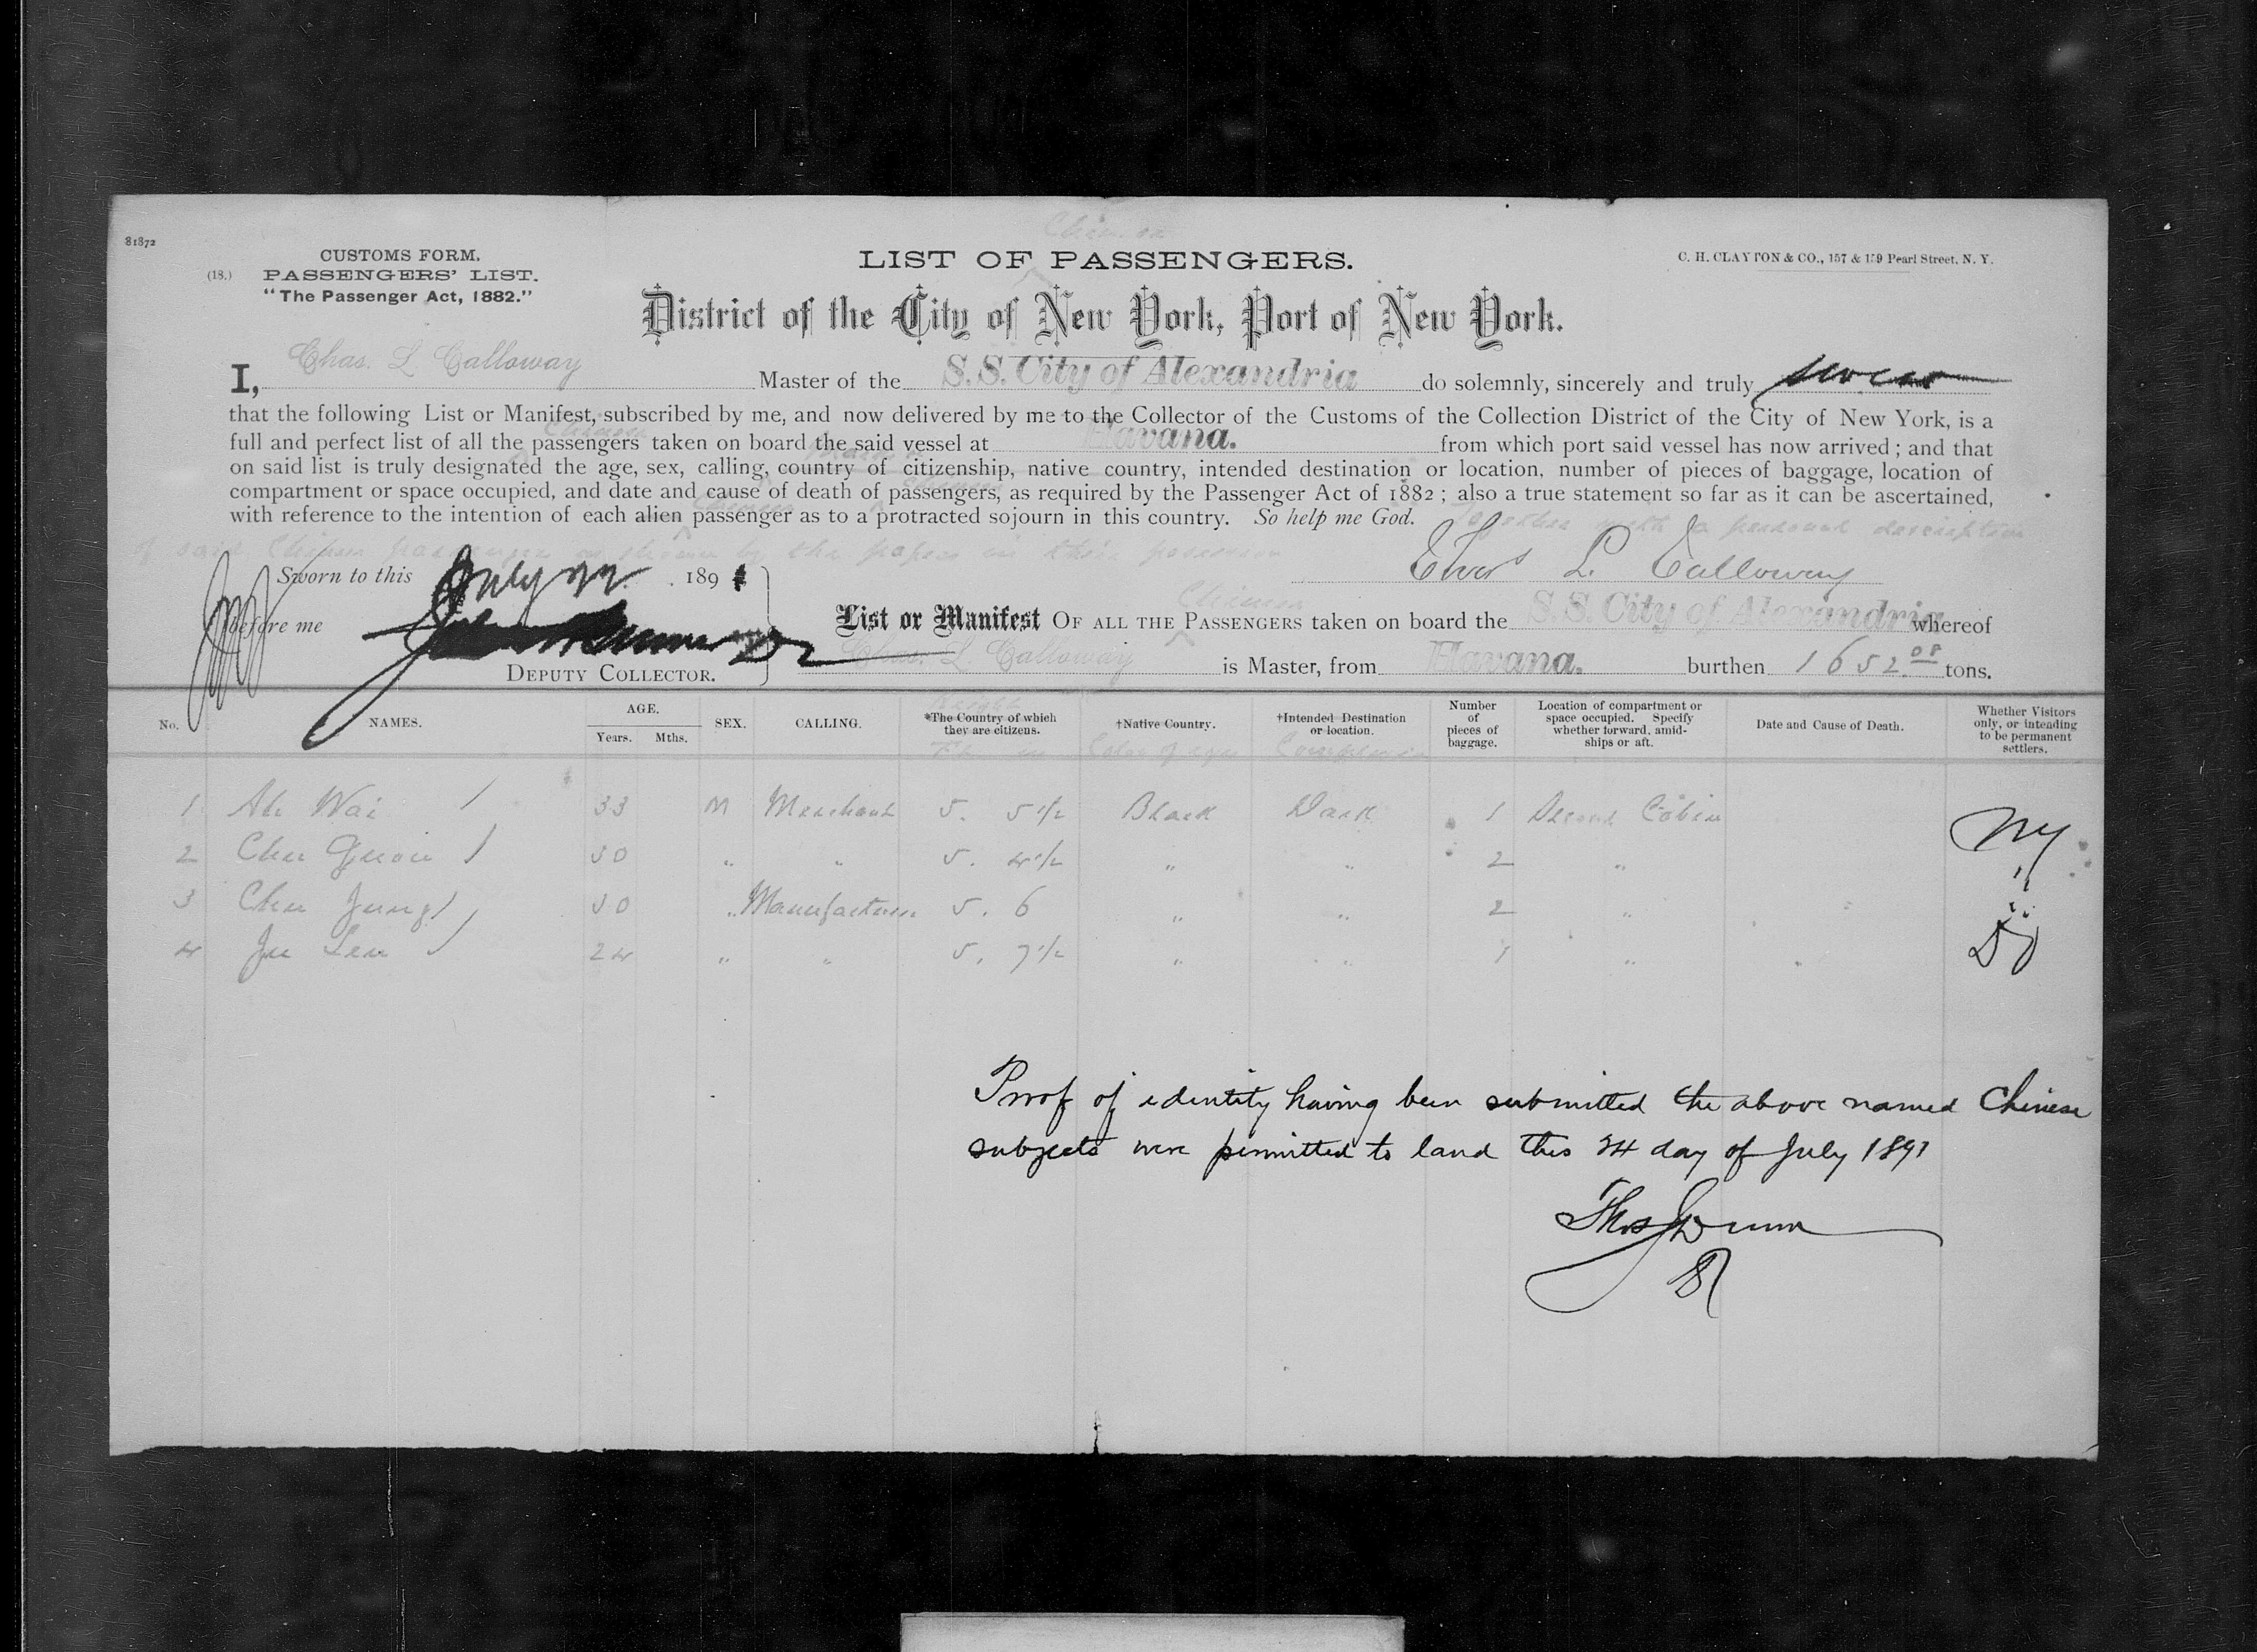 Chinese
81872
CUSTOMS FORM.
(18.) PASSENGERS' LIST.
"The Passenger Act, 1882."
LIST OF PASSENGERS.
C. H. CLAYTON & CO., 157 & 159 Pearl Street, N. Y.
District of the City of New York, Port of New York.
I, Chas. L Calloway Master of the S.S. City of Alexandria do solemnly, sincerely and truly swear
that the following List or Manifest, subscribed by me, and now delivered by me to the Collector of the Customs of the Collection District of the City of New York, is a
Chinese
full and perfect list of all the passengers taken on board the said vessel at Havana. from which port said vessel has now arrived; and that
on said list is truly designated the age, sex, calling, country of citizenship, native country, intended destination or location, number of pieces of baggage, location of
Chinese
compartment or space occupied, and date and cause of death of passengers, as required by the Passenger Act of 1882; also a true statement so far as it can be ascertained,
Chinese
with reference to the intention of each alien passenger as to a protracted sojourn in this country. So help me God. Together with a personal description
of said Chinese passengers as shown by the papers in their possession
Sworn to this July 22 1891
Chas L. Calloway
before me
DEPUTY COLLECTOR.
Chinese
List or Manifest OF ALL THE PASSENGERS taken on board the S.S. City of Alexandria whereof
Chas. L. Calloway is Master, from Havana. burthen 1652.08 tons.
No. NAMES. AGE. Years. Mths. SEX. CALLING. *The Country of which they are citizens. †Native Country. †Intended Destination or location. Number of pieces of baggage. Location of compartment or space occupied. Specify whether forward, amidships or aft. Date and Cause of Death. Whether Visitors only, or intending to be permanent settlers.
Height Color of eyes Complexion
1 Ah Wai / 33 M Merchant 5. 5 1/2 Black Dark 1 Second Cabin NY
2 Chu / 30 " " 5. 4 1/2 " " 2 " "
3 Chu Jung / 30 " Manufacturer 5. 6 " " 2 " "
4 Ju Leu / 24 " " 5. 7 1/2 " " 1 "
Proof of identity having been submitted the above named Chinese
subjects were permitted to land this 24 day of July 1891
Thos J Dunn